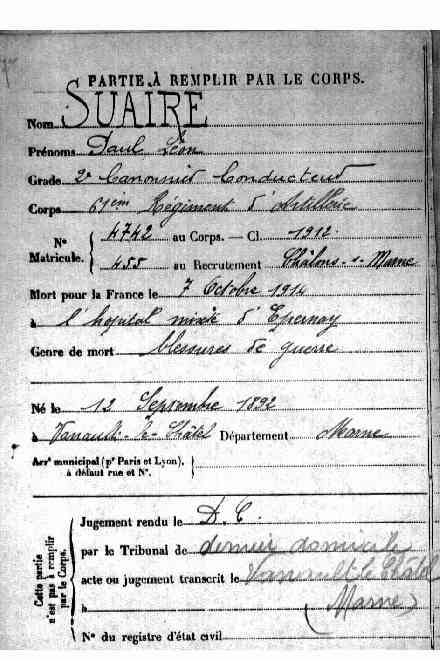 PARTIE À REMPLIR PAR LE CORPS.
Nom SUAIRE
Prénoms Paul Léon
Grade 2e Canonnier Conducteur
Corps 61em Régiment d'Artillerie
N° Matricule. 4742 au Corps. — Cl. 1912.
455 au Recrutement Châlons-s-Marne
Mort pour la France le 7 Octobre 1914
à l'hôpital mixte d'Epernay
Genre de mort blessures de guerre
Né le 12 Septembre 1892
à Vanault-le-Châtel Département Marne
Arrt municipal (pr Paris et Lyon),
à défaut rue et N°.
Cette partie n'est pas à remplir par le Corps.
Jugement rendu le D. C.
par le Tribunal de dernier domicile
acte ou jugement transcrit le Vanault le Châtel
à (Marne)
N° du registre d'état civil